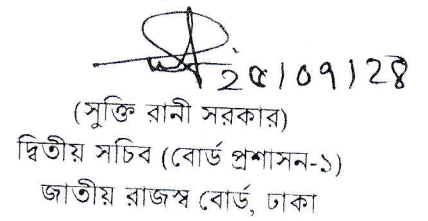 ২৫/০৭/২৪
(সুক্তি রানী সরকার)
দ্বিতীয় সচিব (বোর্ড প্রশাসন-১)
জাতীয় রাজস্ব বোর্ড, ঢাকা